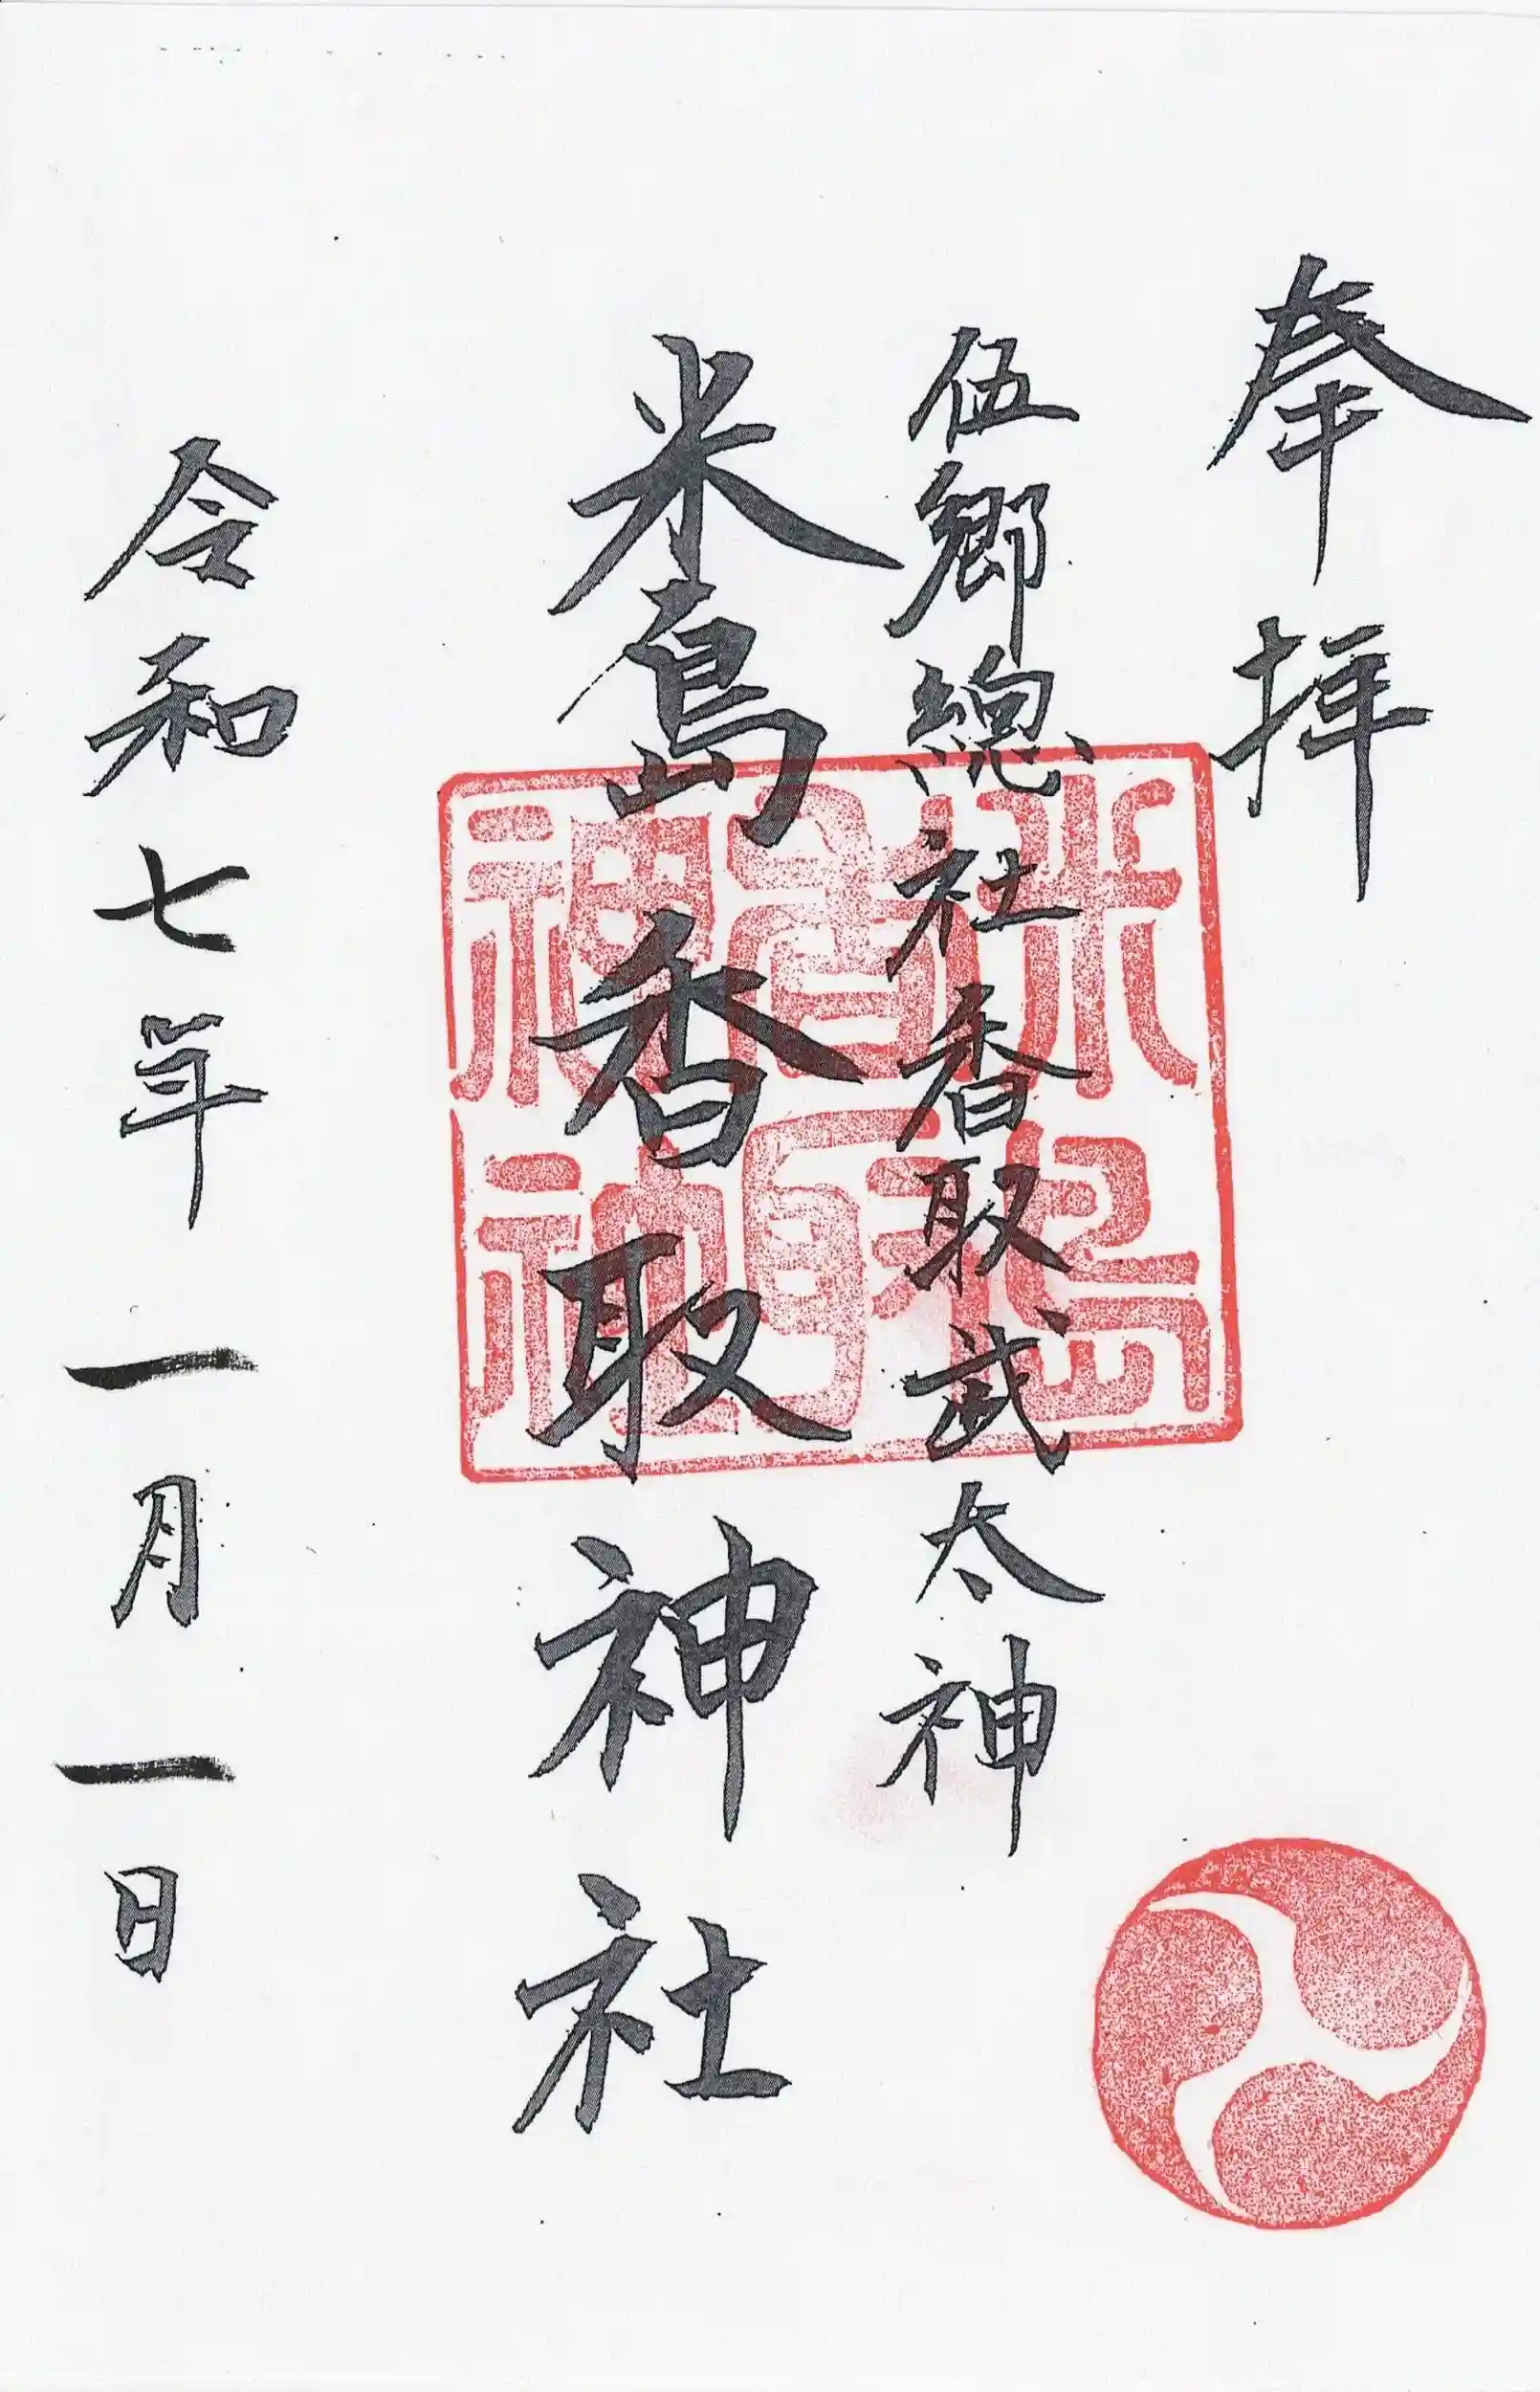 奉拝
伍郷總社香取武太神
米島香取神社
米島香取神社
令和七年一月一日